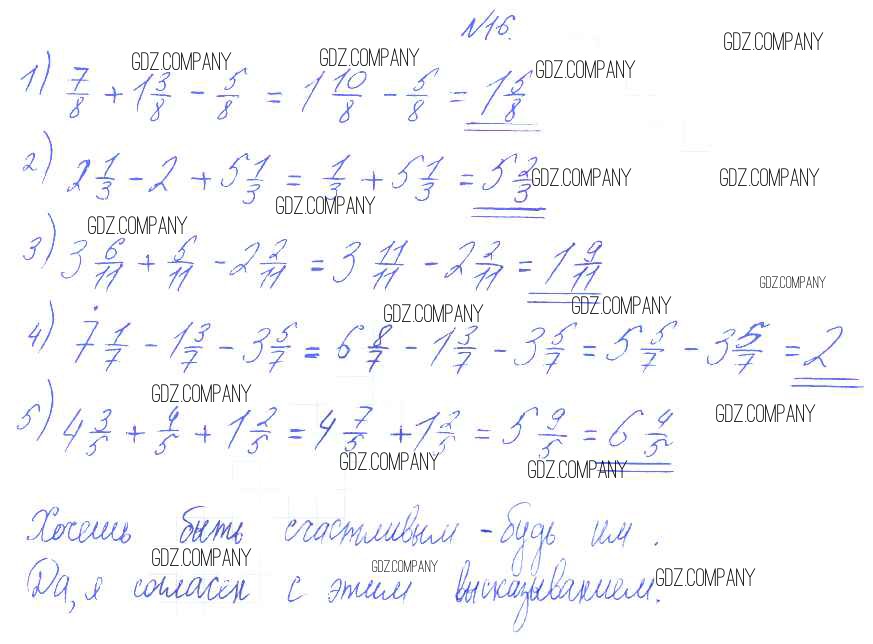 №16.
1) 7/8 + 1 3/8 - 5/8 = 1 10/8 - 5/8 = 1 5/8
2) 2 1/3 - 2 + 5 1/3 = 1/3 + 5 1/3 = 5 2/3
3) 3 6/11 + 5/11 - 2 2/11 = 3 11/11 - 2 2/11 = 1 9/11
4) 7 1/7 - 1 3/7 - 3 5/7 = 6 8/7 - 1 3/7 - 3 5/7 = 5 5/7 - 3 5/7 = 2
5) 4 3/5 + 4/5 + 1 2/5 = 4 7/5 + 1 2/5 = 5 9/5 = 6 4/5
Хочешь быть счастливым - будь им.
Да, я согласен с этим высказыванием.
GDZ.COMPANY GDZ.COMPANY GDZ.COMPANY GDZ.COMPANY
GDZ.COMPANY GDZ.COMPANY GDZ.COMPANY
GDZ.COMPANY GDZ.COMPANY
GDZ.COMPANY GDZ.COMPANY
GDZ.COMPANY GDZ.COMPANY
GDZ.COMPANY GDZ.COMPANY
GDZ.COMPANY GDZ.COMPANY GDZ.COMPANY